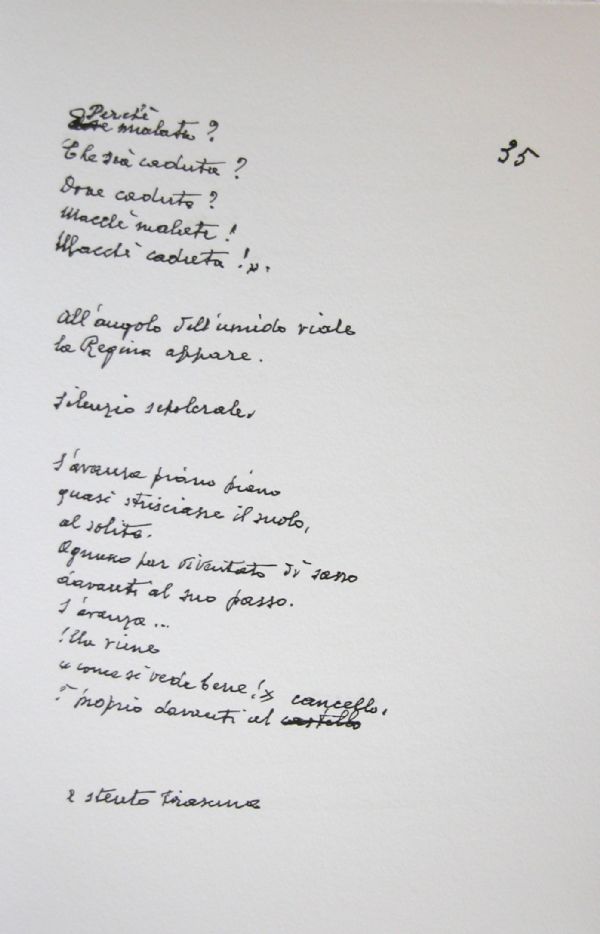 Perchè
malata ?
35
Che sia caduta ?
Dove caduta ?
Macchè malata !
Macchè caduta !».
All'angolo dell'umido viale
la Regina appare.
Silenzio sepolcrale.
S'avanza piano piano
quasi strisciasse il suolo,
al solito.
Ognuno par diventato di sasso
davanti al suo passo.
S'avanza...
Ella viene
« come si vede bene !»
cancello.
È proprio davanti al castello
e stento trascina